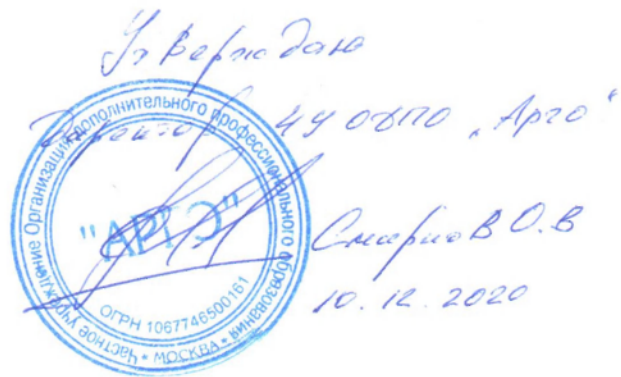 Утверждаю
Директор ЧУ ОДПО „Арго“
Смирнов О.В
10.12.2020
Частное учреждение Организация дополнительного профессионального образования
"АРГО"
ОГРН 1067746500161
* МОСКВА *